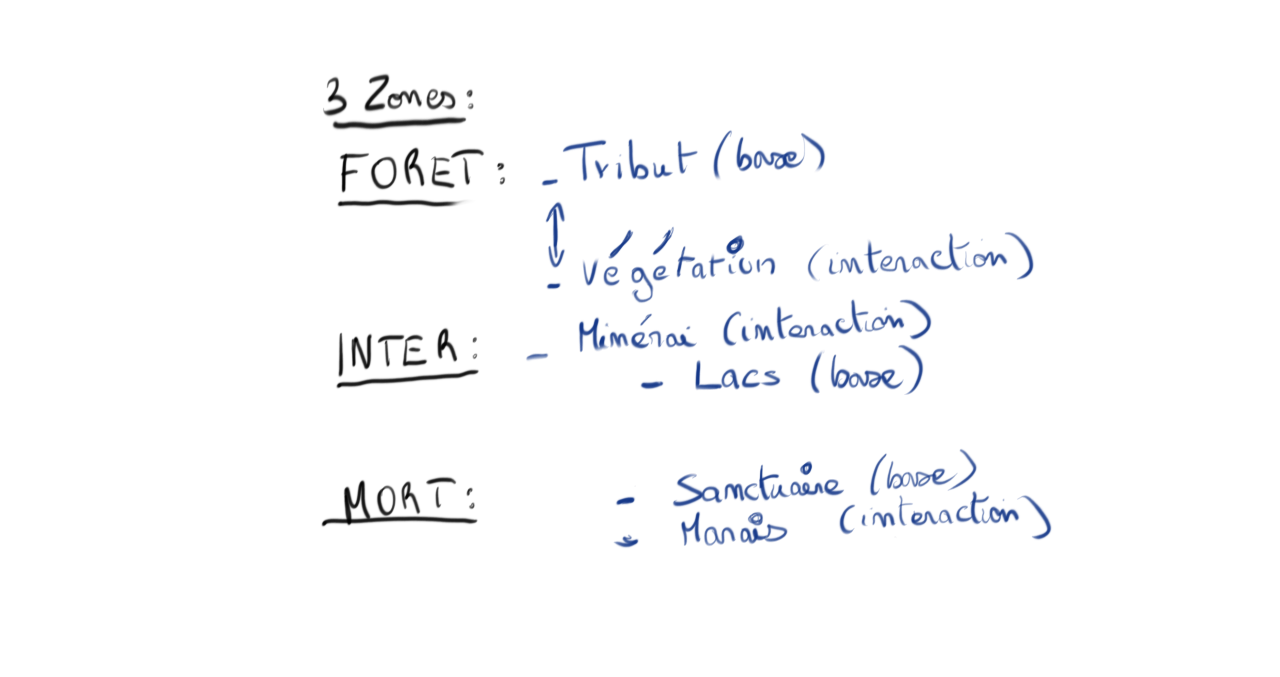 3 Zones:
FORET: - Tribut (base)
- végétation (interaction)
INTER: - Minérai (interaction)
- Lacs (base)
MORT: - Sanctuaire (base)
- Marais (interaction)